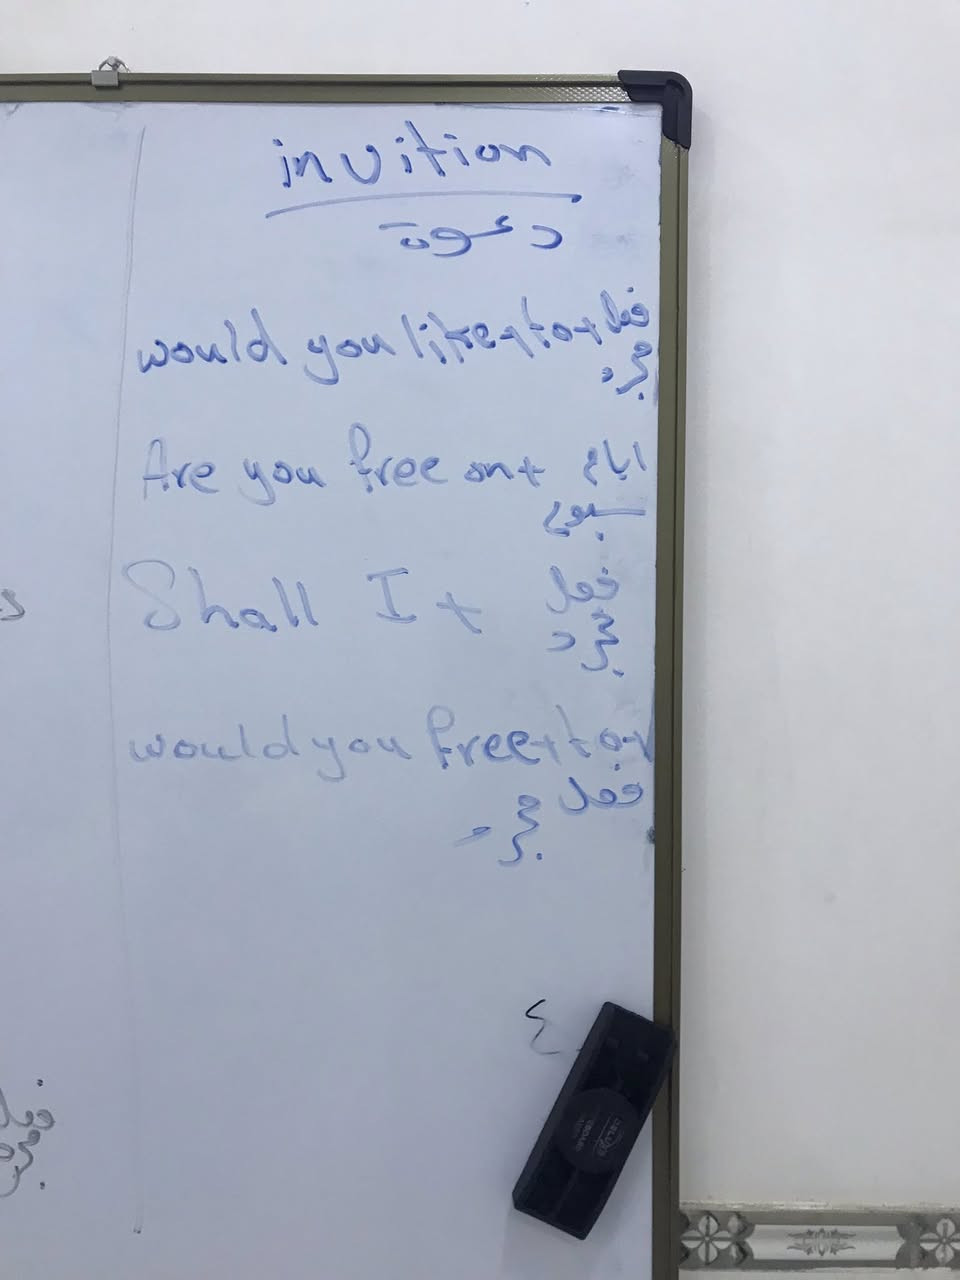 invition
دعوة
would you like + to + فعل
مجرد
Are you free on + ايام
اسبوع
Shall I + فعل
مجرد
would you free + to +
فعل
مجرد
٤
فعل
مجرد